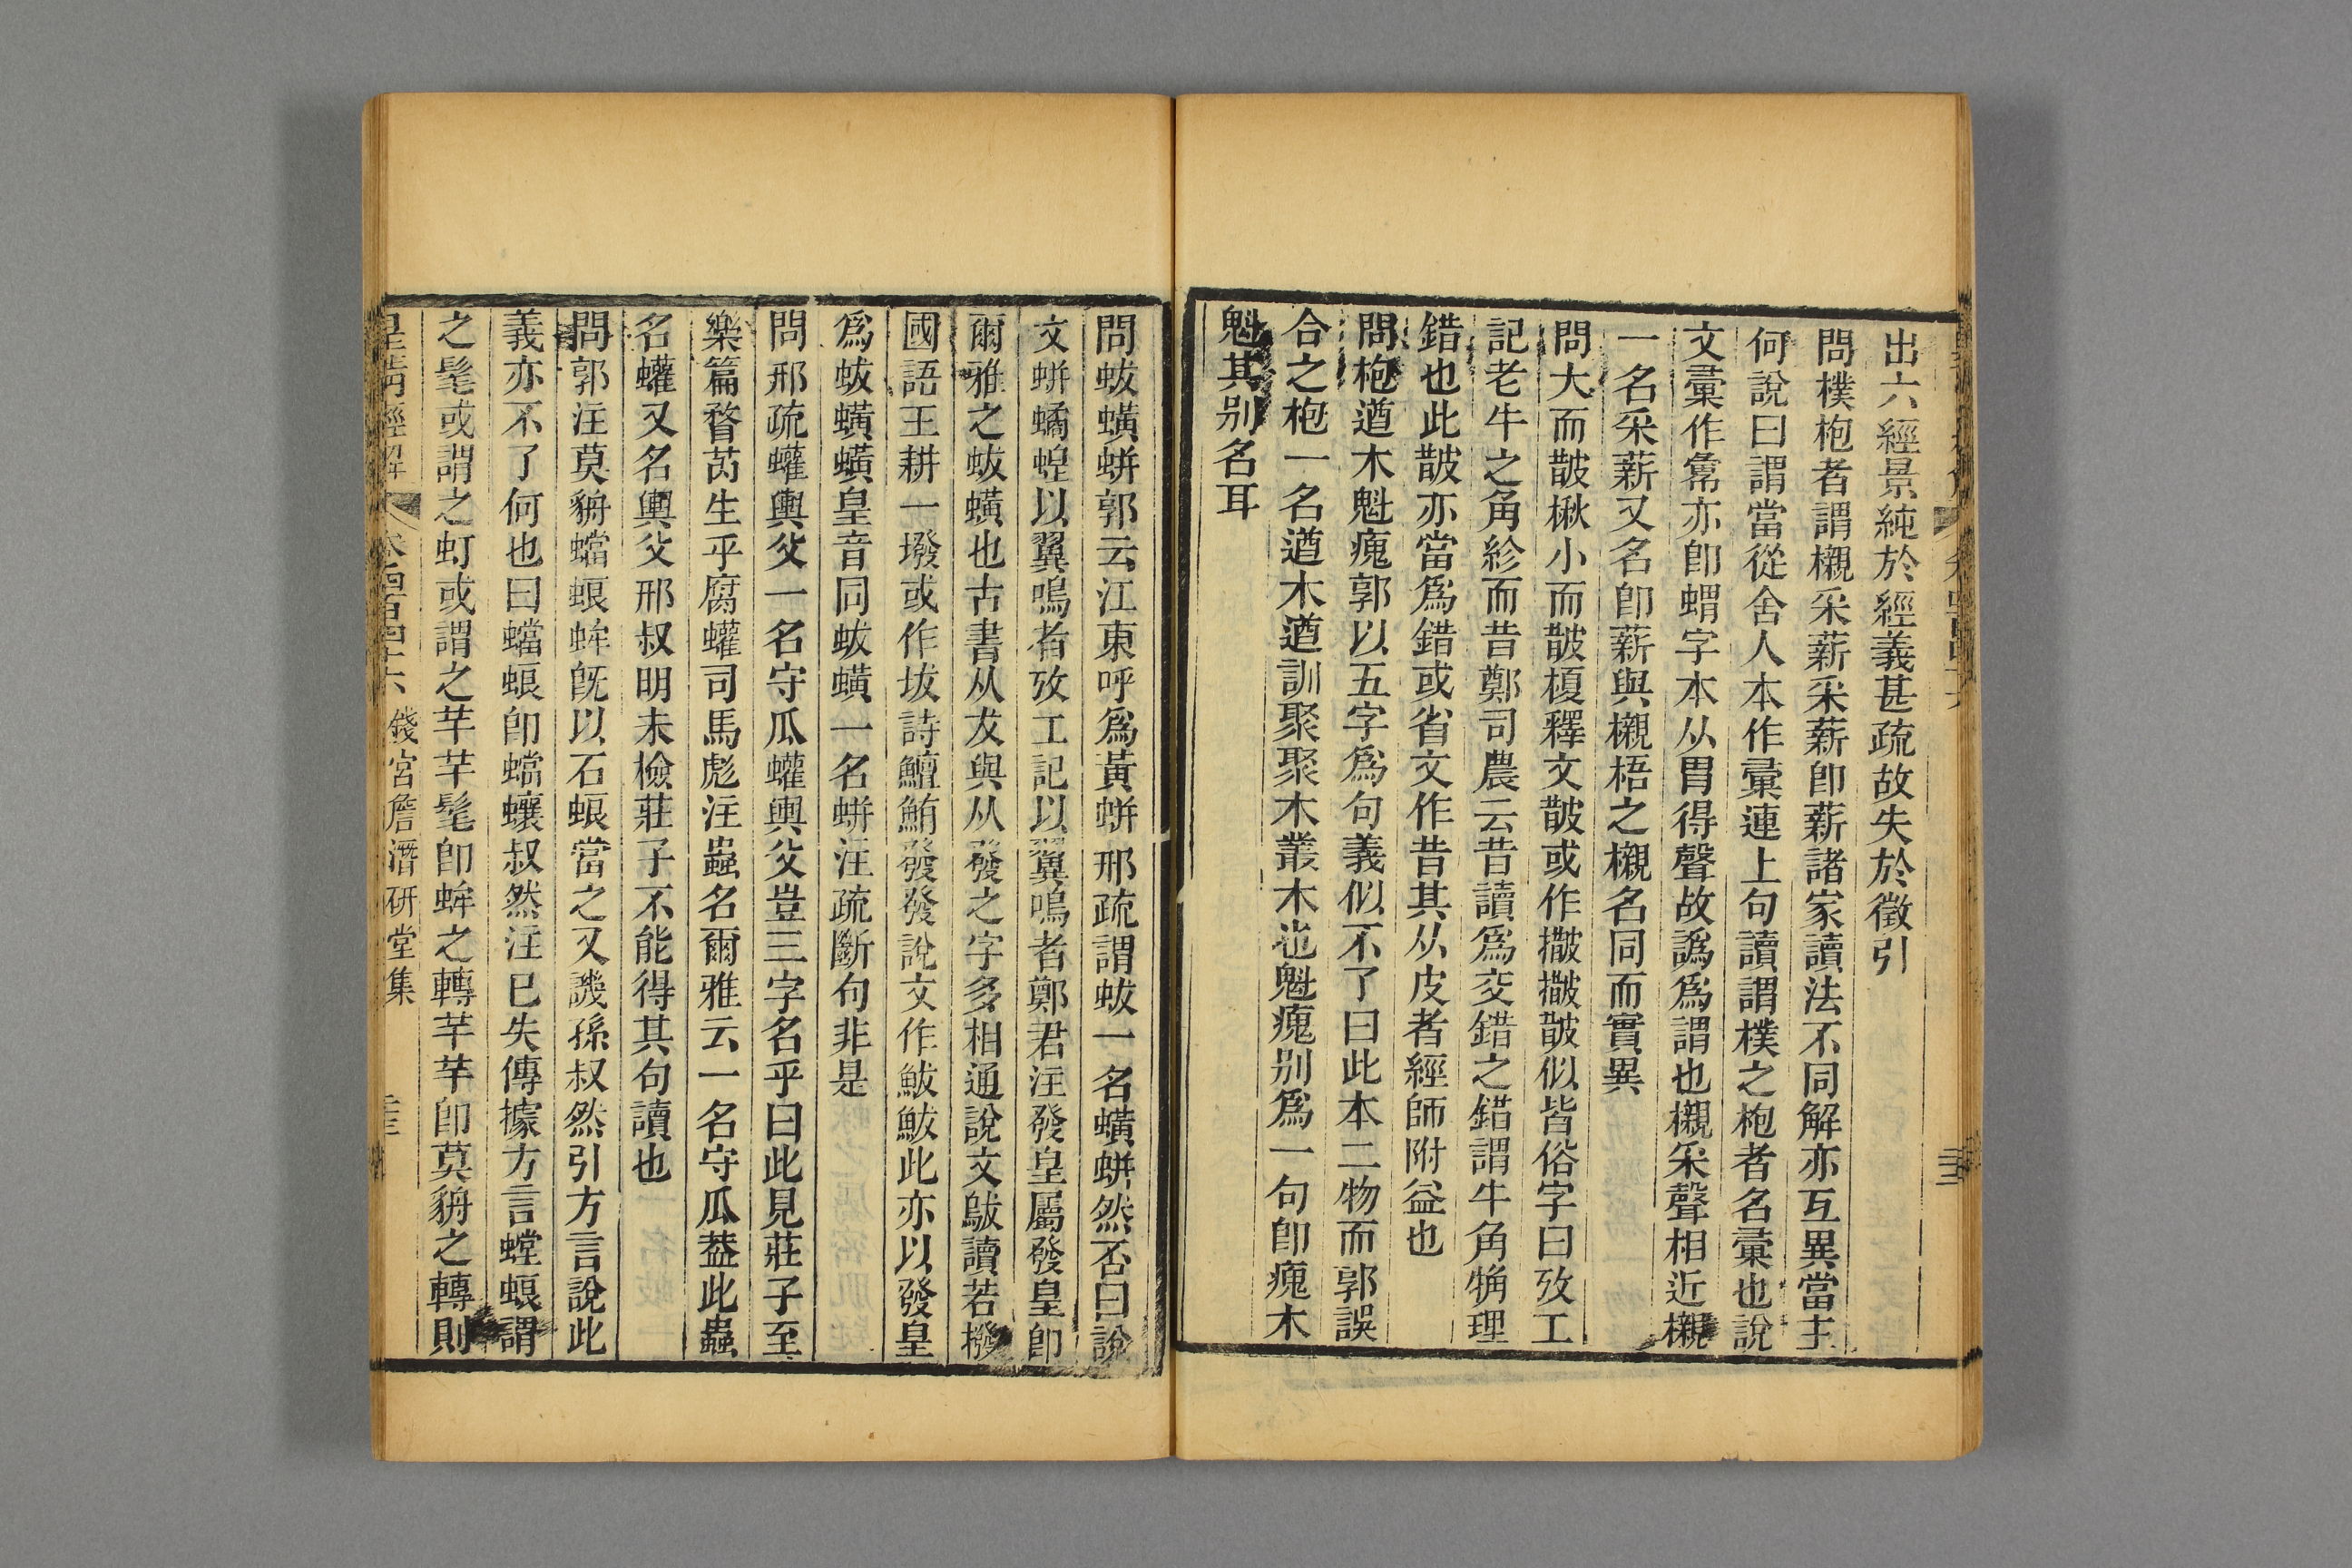 出六經景純於經義甚疏故失於徵引
問樸枹者謂櫬采薪采薪卽薪諸家讀法不同解亦互異當主
何說曰謂當從舍人本作彙連上句讀謂樸之枹者名彙也說
文彙作㣇亦卽蝟字本从胃得聲故譌爲謂也櫬采聲相近櫬
一名采薪又名卽薪與櫬梧之櫬名同而實異
問大而皵楸小而皵榎釋文皵或作㩇㩇皵似皆俗字曰攷工
記老牛之角紾而昔鄭司農云昔讀爲交錯之錯謂牛角觕理
錯也此皵亦當爲錯或省文作昔其从皮者經師附益也
問枹遒木魁瘣郭以五字爲句義似不了曰此本二物而郭誤
合之枹一名遒木遒訓聚聚木叢木也魁瘣别爲一句卽瘣木
魁其别名耳
問蛂蟥蛢郭云江東呼爲黃蛢邢疏謂蛂一名蟥蛢然否曰說
文蛢蟠蝗以翼鳴者攷工記以翼鳴者鄭君注發皇屬發皇卽
爾雅之蛂蟥也古書从犮與从發之字多相通說文鼥讀若撥
國語王耕一墢或作坺詩鱣鮪發發說文作鮁鮁此亦以發皇
爲蛂蟥蟥皇音同蛂蟥一名蛢注疏斷句非是
問邢疏蠸輿父一名守瓜蠸輿父豈三字名乎曰此見莊子至
樂篇瞀芮生乎腐蠸司馬彪注蟲名爾雅云一名守瓜葢此蟲
名蠸又名輿父邢叔明未檢莊子不能得其句讀也
問郭注莫貈蟷蜋蛑旣以石蜋當之又譏孫叔然引方言說此
義亦不了何也曰蟷蜋卽蟷蠰叔然注已失傳據方言螳蜋謂
之髦或謂之虰或謂之芊芊髦卽蛑之轉芊芊卽莫貈之轉則
皇清經解 卷四百四十六 錢宮詹潛研堂集